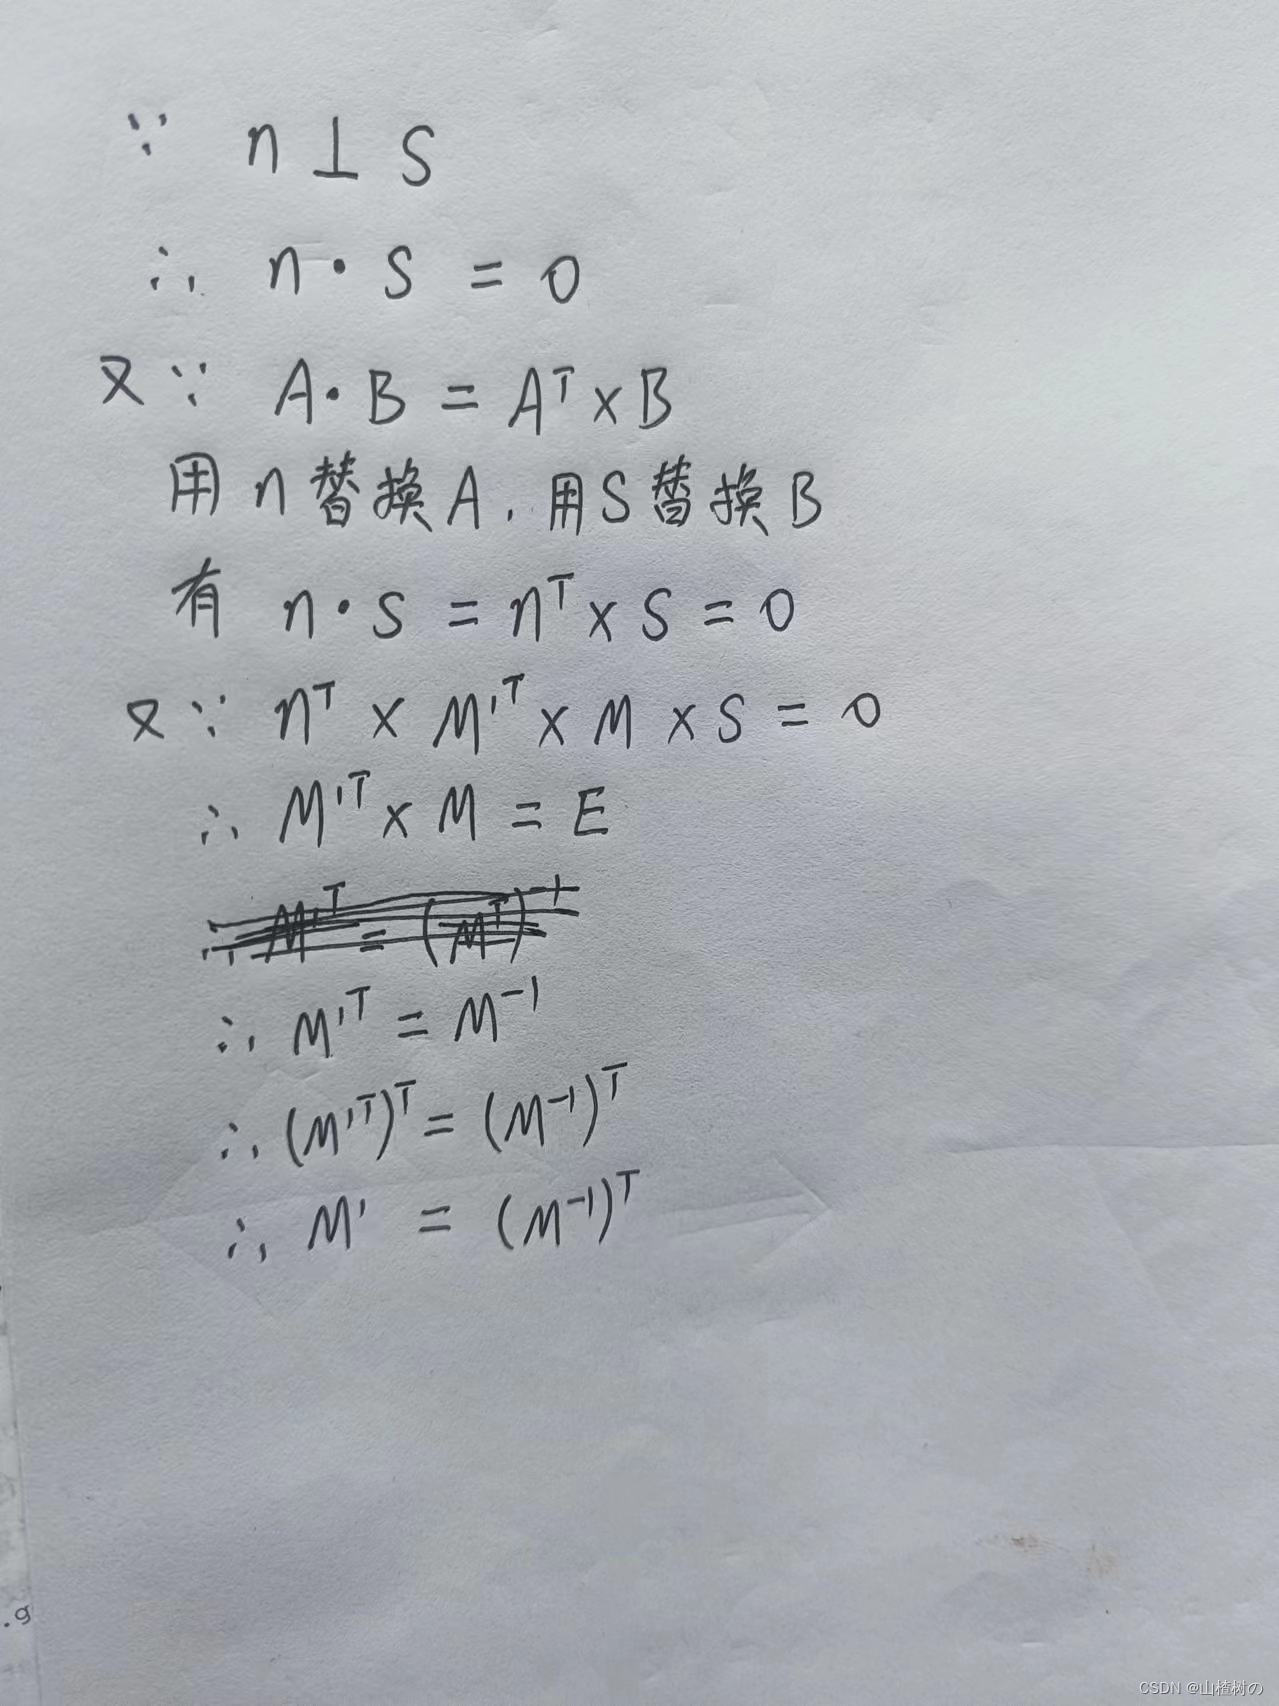 ∵ n ⊥ S
∴ n · S = 0
又∵ A · B = Aᵀ × B
用n替换A，用S替换B
有 n · S = nᵀ × S = 0
又∵ nᵀ × M'ᵀ × M × S = 0
∴ M'ᵀ × M = E
∴ M'ᵀ = (Mᵀ)⁻¹
∴ M'ᵀ = M⁻¹
∴ (M'ᵀ)ᵀ = (M⁻¹)ᵀ
∴ M' = (M⁻¹)ᵀ
.g
CSDN @山楂树の